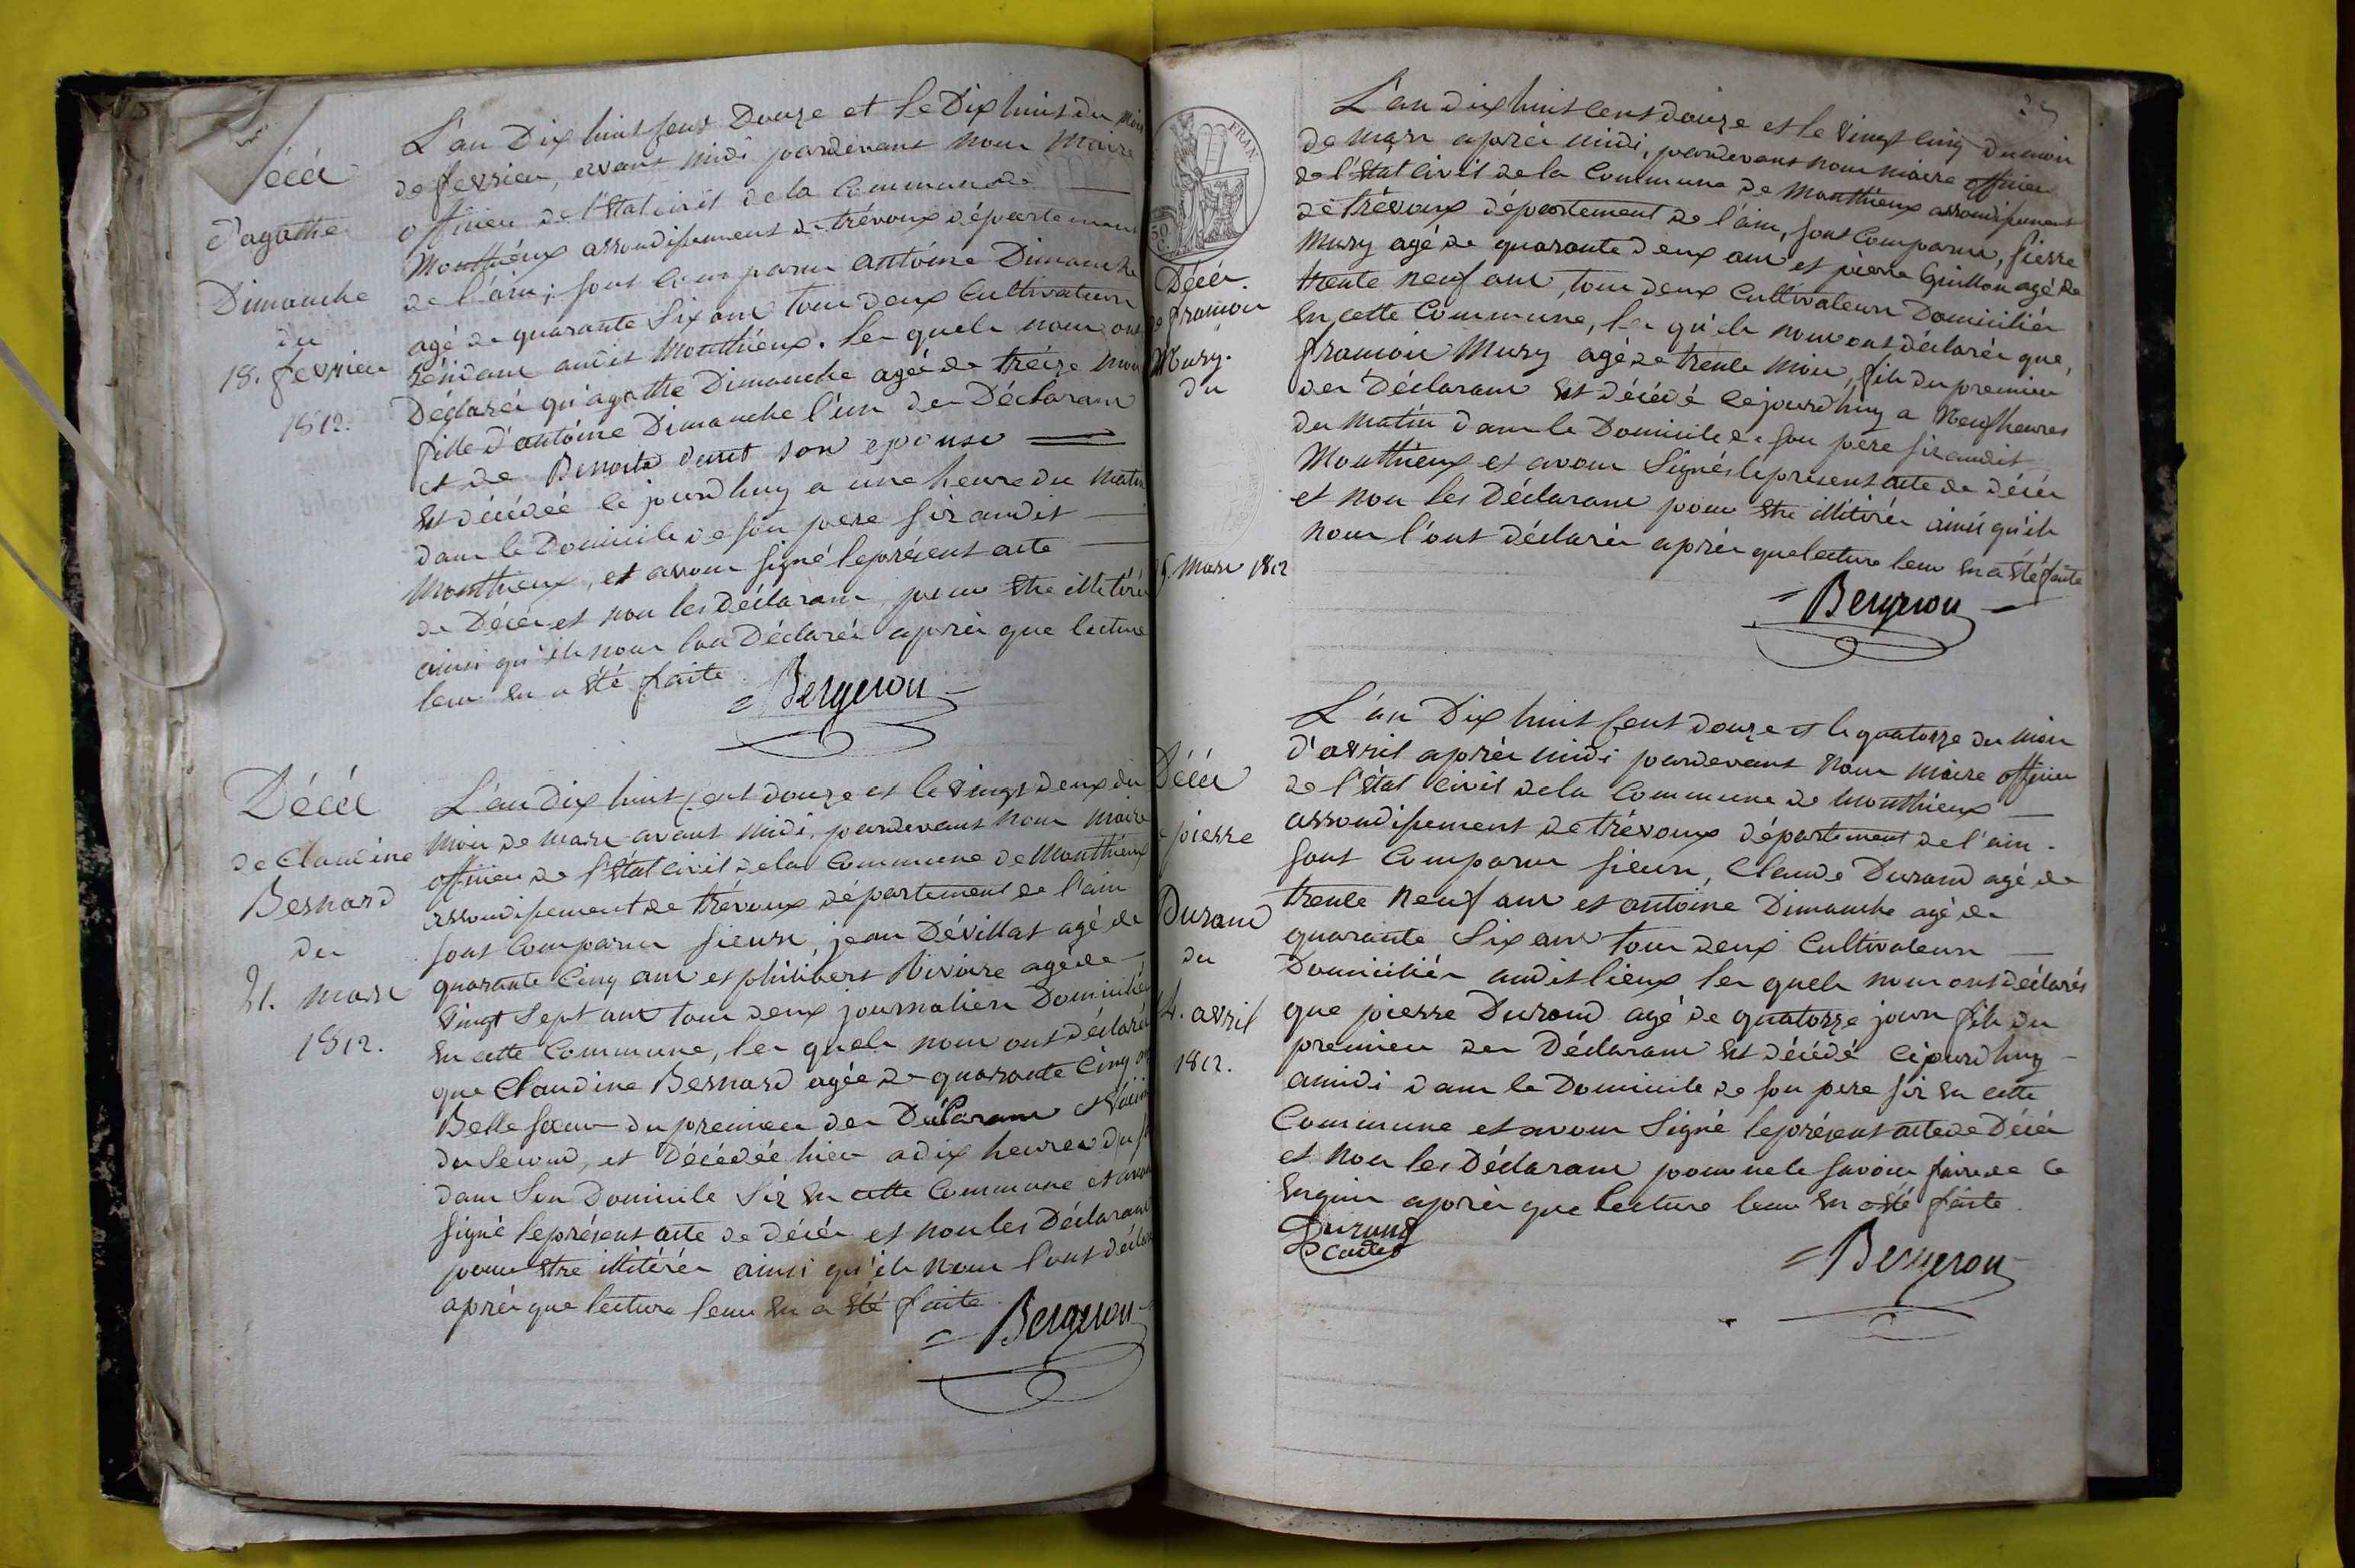 Décès
d'agathe
Dimanche
du
18. fevrier
1812.
L'an Dix huit Cent Douze et le Dix huit du mois
de fevrier, avant midi pardevant nous Maire
officier de l'Etat civil de la Commune de
Monthieux arrondissement de trévoux département
de l'ain; sont comparus antoine Dimanche
agé de quarante Six ans tous deux Cultivateurs
résidans audit Monthieux. les quels nous ont
Déclarés qu'agathe Dimanche agée de treize mois
fille d'antoine Dimanche l'un des Déclarans
et de Benoite son epouse
Est décédée ce jourdhuy a une heure du matin
dans le Domicile de son pere sis audit
Monthieux, et avons signé le présent acte
de Décès et non les Déclarans pour Etre illitérés
ainsi qu'ils nous l'on Déclarés après que lecture
leur En a Eté faite.
Bergeron
Décès
de Claudine
Bernard
du
21. mars
1812.
L'an Dix huit Cent douze et le Vingt deux du
mois de mars avant midi, pardevant nous maire
officier de l'Etat Civil de la Commune de Monthieux
arrondissement de trévoux département de l'ain
sont Comparus sieurs, jean Dévillas agé de
quarante Cinq ans et philibert Rivoire agé de
Vingt Sept ans tous deux journaliers Domiciliés
En cette Commune, les quels nous ont déclarés
que Claudine Bernard agée de quarante Cinq ans
Belle sœur du premier des Déclarans et
du Second, et Décédée hier a dix heures du
dans Son Domicile Sis En cette Commune et avons
signé le présent acte de décès et non les Déclarans
pour Etre illitérés ainsi qu'ils nous l'ont déclarés
après que lecture leur En a Eté faite.
Bergeron
FRAN.
50
C.
Décès
de françois
Mury.
du
25. Mars 1812
L'an dix huit cent douze et le Vingt Cinq du mois
de mars après midi, pardevant nous maire officier
de l'Etat Civil de la Commune de Monthieux arrondissement
de trévoux département de l'ain, sont Comparus, pierre
Mury agé de quarante deux ans et pierre Guillon agé de
trente neuf ans, tous deux Cultivateurs Domiciliés
En cette Commune, les qu'els nous ont déclarés que,
françois Mury agé de trente mois, fils du premier
des Déclarans Est décédé cejourdhuy a Neuf heures
du Matin dans le Domicile de son père sis audit
Monthieux et avons Signés le présent acte de décès
et non les Déclarans pour Etre illitérés ainsi qu'ils
nous l'ont déclarés après que lecture leur En a Eté faite
Bergeron
Décès
de pierre
Durand
du
14. avril
1812.
L'an Dix huit Cent douze et le quatorze du mois
d'avril après midi pardevant nous maire officier
de l'Etat Civil de la Commune de Monthieux
arrondissement de trévoux département de l'ain.
sont Comparus sieurs, Claude Durand agé de
trente Neuf ans et antoine Dimanche agé de
quarante Six ans tous deux Cultivateurs
Domiciliés audit lieux les quels nous ont déclarés
que pierre Durand agé de quatorze jours fils du
premier des Déclarans Est décédé cejourdhuy
a midi dans le Domicile de son pere sis En cette
Commune et avons Signé le présent acte de Décès
et Non les Déclarans pour ne le savoir faire de ce
Enquis après que lecture leur En a Eté faite.
Durand
Cadet
Bergeron